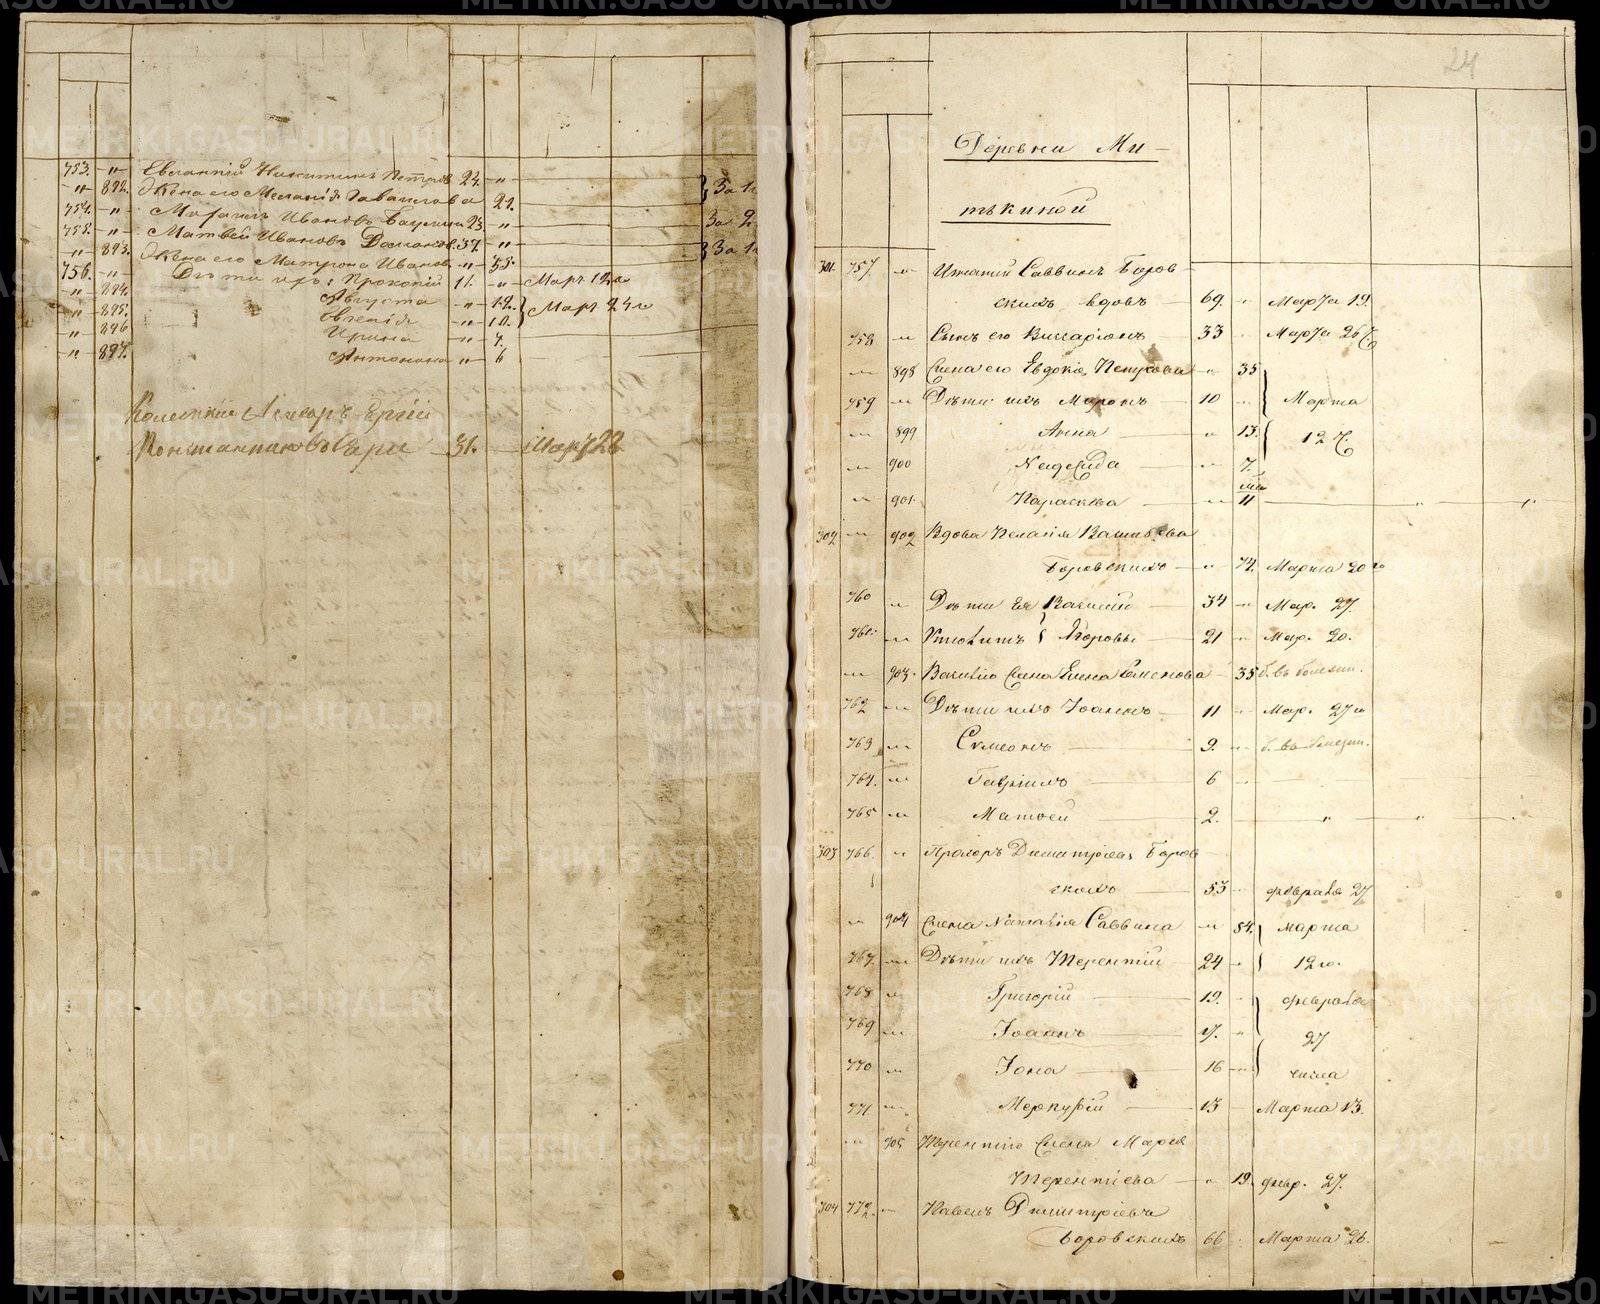 753. -"- Евгений Никитинъ Петров 24. -"-
-"- 892. Жена его Меланія 21. За 1
754. -"- Иванов 23 -"- За 2
755. -"- Матвей Ивановъ 37 -"-
-"- 893. Жена его Матрона Иванов. -"- 35. За 1
756. -"- Дѣти ихъ: Прокопій 11. -"- Март 12го
-"- 894. Августа -"- 12. Март 24го
-"- 895. Евгенія -"- 10.
-"- 896 Ирина -"- 7.
-"- 897. Антонина -"- 6
31. Март 22
24
Деревни Ми-
тькиной
301. 757. -"- Игнатий Саввинъ Боров-
скихъ вдовъ 69. -"- Марта 19.
758 -"- Сынъ его Виссаріонъ 33 Марта 26
-"- 898 Жена его Евдокія -"- 35
759 -"- Дѣти ихъ Миронъ 10 -"- Марта
-"- 899 Анна -"- 13. 12
-"- 900 Надежда -"- 7.
-"- 901. Парасква -"- 11
302 -"- 902 Вдова Пелагія
Боровскихъ -"- 74. Марта 20го
760 -"- Дѣти Ея Василій 34 -"- Мар. 27.
761. -"- Егоровы 21 -"- Мар. 20.
-"- 903. Василію Жена Елена Семенова 35 б. въ болезни.
762 -"- Дѣти ихъ Іоаннъ 11 -"- Мар. 27го
763 -"- Сумеонъ 9. -"- б. въ болезни.
764. -"- Гавріилъ 6 -"-
765 -"- Матвей 2. " "
303 766. -"- Прохоръ Димитріевъ Боров-
скихъ 53 -"- Февраля 27
-"- 904 Жена Наталія Саввина -"- 54. Марта
767. -"- Дѣти ихъ Терентій 24 -"- 12го.
768 -"- Григорій 19. -"- Февраля
769 -"- Іоаннъ 17. -"- 27
770 -"- Іона 16 -"- числа
771 -"- Меркурій 13 Марта 13.
-"- 905 Терентію Жена Марія
Терентіева -"- 19. февр. 27.
304 772. -"- Павелъ Димитріевъ
Боровскихъ 66 Марта 26.
METRIKI.GASO-URAL.RU